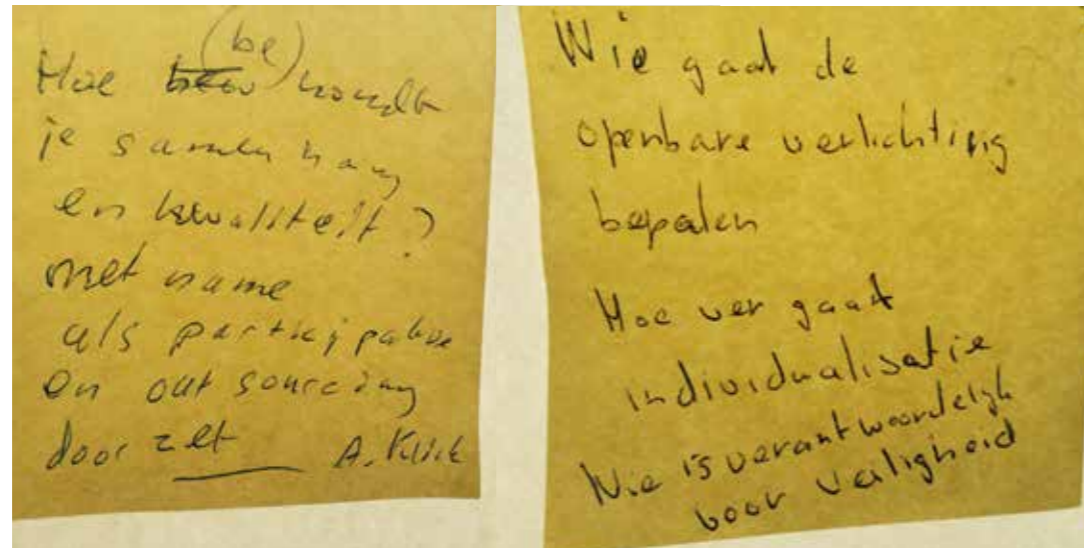 (be)
Hoe houdt
je samenhang
en kwaliteit?
met name
als participatie
en outsourcing
door zet
A. Klink
Wie gaat de
openbare verlichting
bepalen
Hoe ver gaat
individualisatie
Wie is verantwoordelijk
voor veiligheid